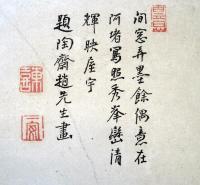 閒窓弄墨餘偶意在
阿堵寫照秀峯巒清
輝映座宇
題陶齋趙先生畫